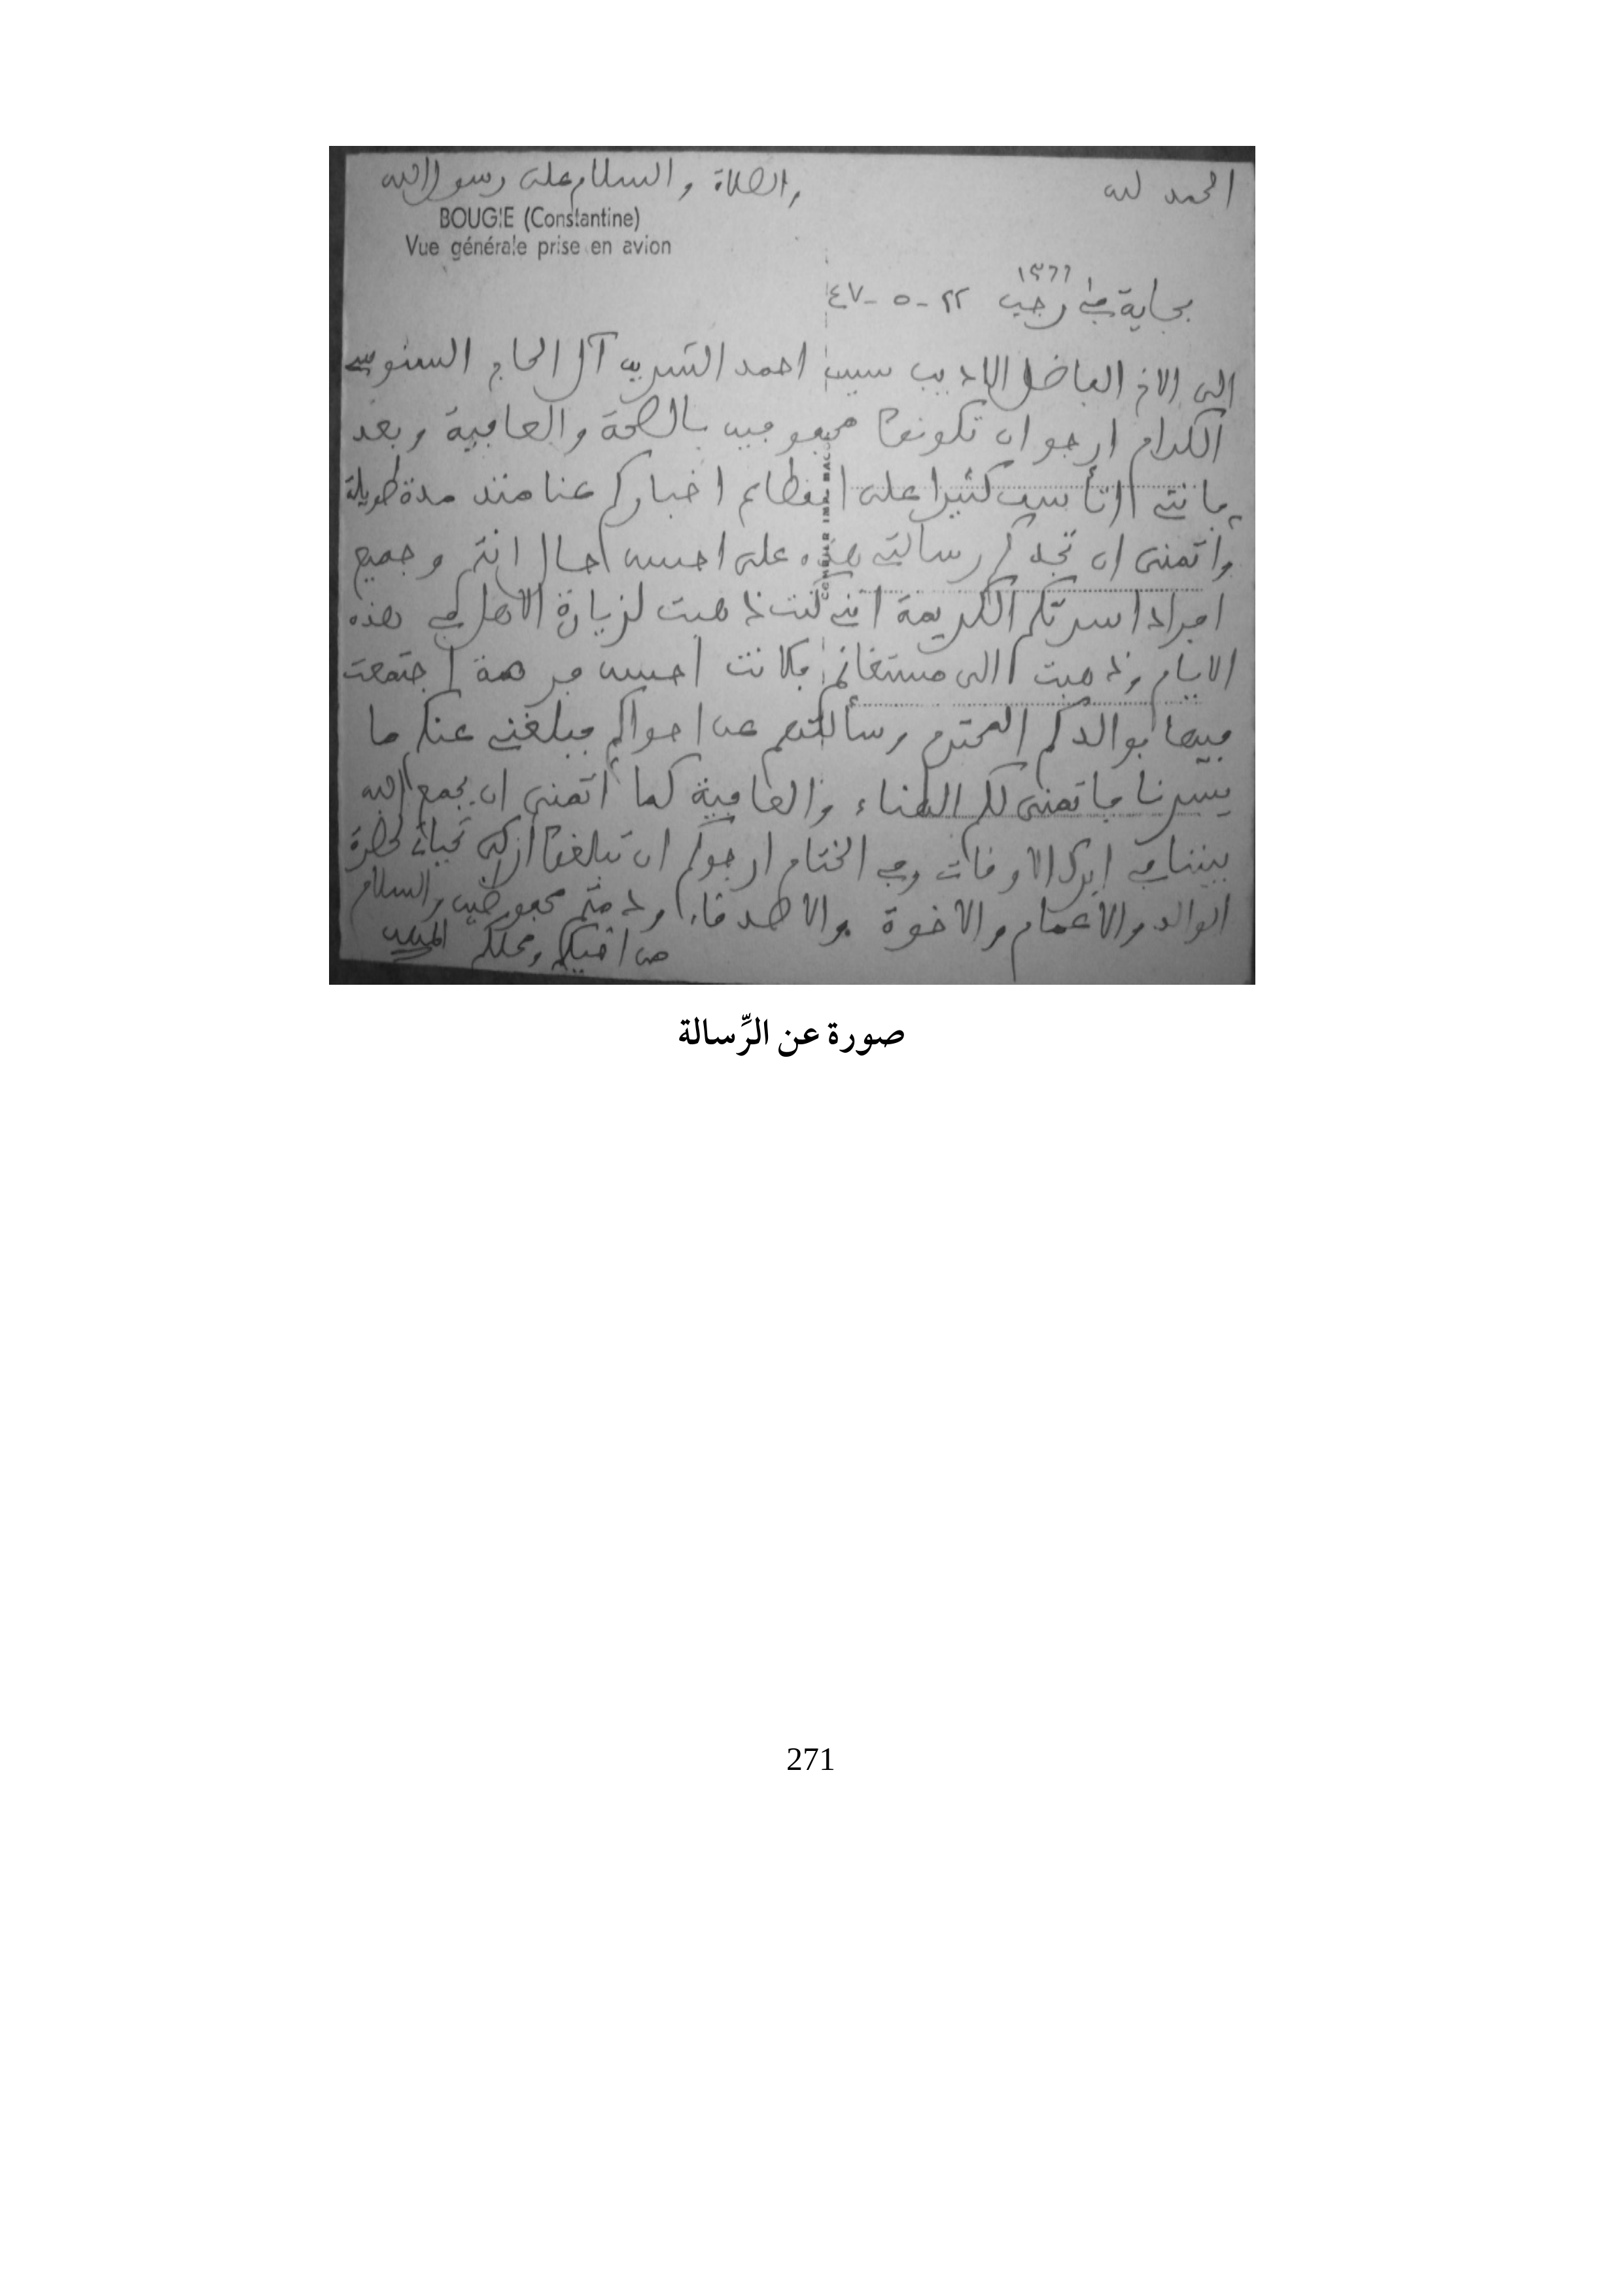 الحمد لله والصلاة والسلام على رسول الله
BOUGIE (Constantine)
Vue générale prise en avion
١٣٦٦
بجاية في رجب ٢٢-٥-٤٧
الى الاخ الفاضل الاديب سيد احمد الشريف آل الحاج السنوسي
الكرام ارجو ان تكونوا محفوفين بالصحة والعافية وبعد
فانني اتأسف كثيرا على انقطاع اخباركم عنا منذ مدة طويلة
واتمنى ان تجدكم رسالتي هذه على احسن حال انتم وجميع
افراد اسرتكم الكريمة انني كنت ذهبت لزيارة الاهل في هذه
الايام وذهبت الى مستغانم فكانت احسن فرصة اجتمعت
فيها بوالدكم المحترم وسألتهم عن احوالكم فبلغني عنكم ما
يسرنا فاتمنى لكم الهناء والعافية كما أتمنى ان يجمع الله
بيننا في ابرك الاوقات وفي الختام ارجوكم ان تبلغوا أزكى تحياتي لحضرة
الوالد والأعمام والاخوة والاصدقاء ودمتم محفوظين والسلام
من اخيكم ومحبكم
صورة عن الرِّسالة
271